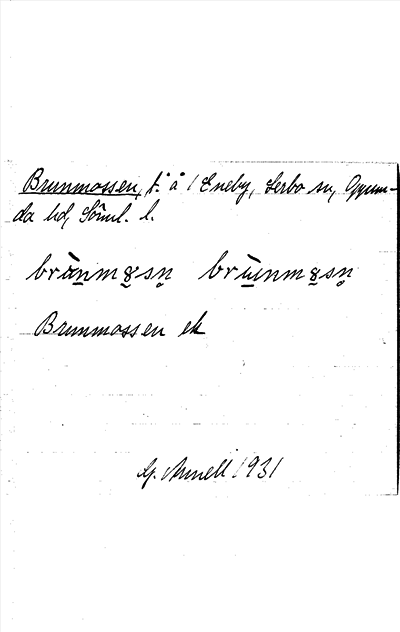 Brunmossen, t. å 1 Eneby, Lerbo sn, Oppun-
da hd, Söml. l.
brùnmɤsn̥ brùnmɤsn̥
Brunmossen ek
G. Annell 1931